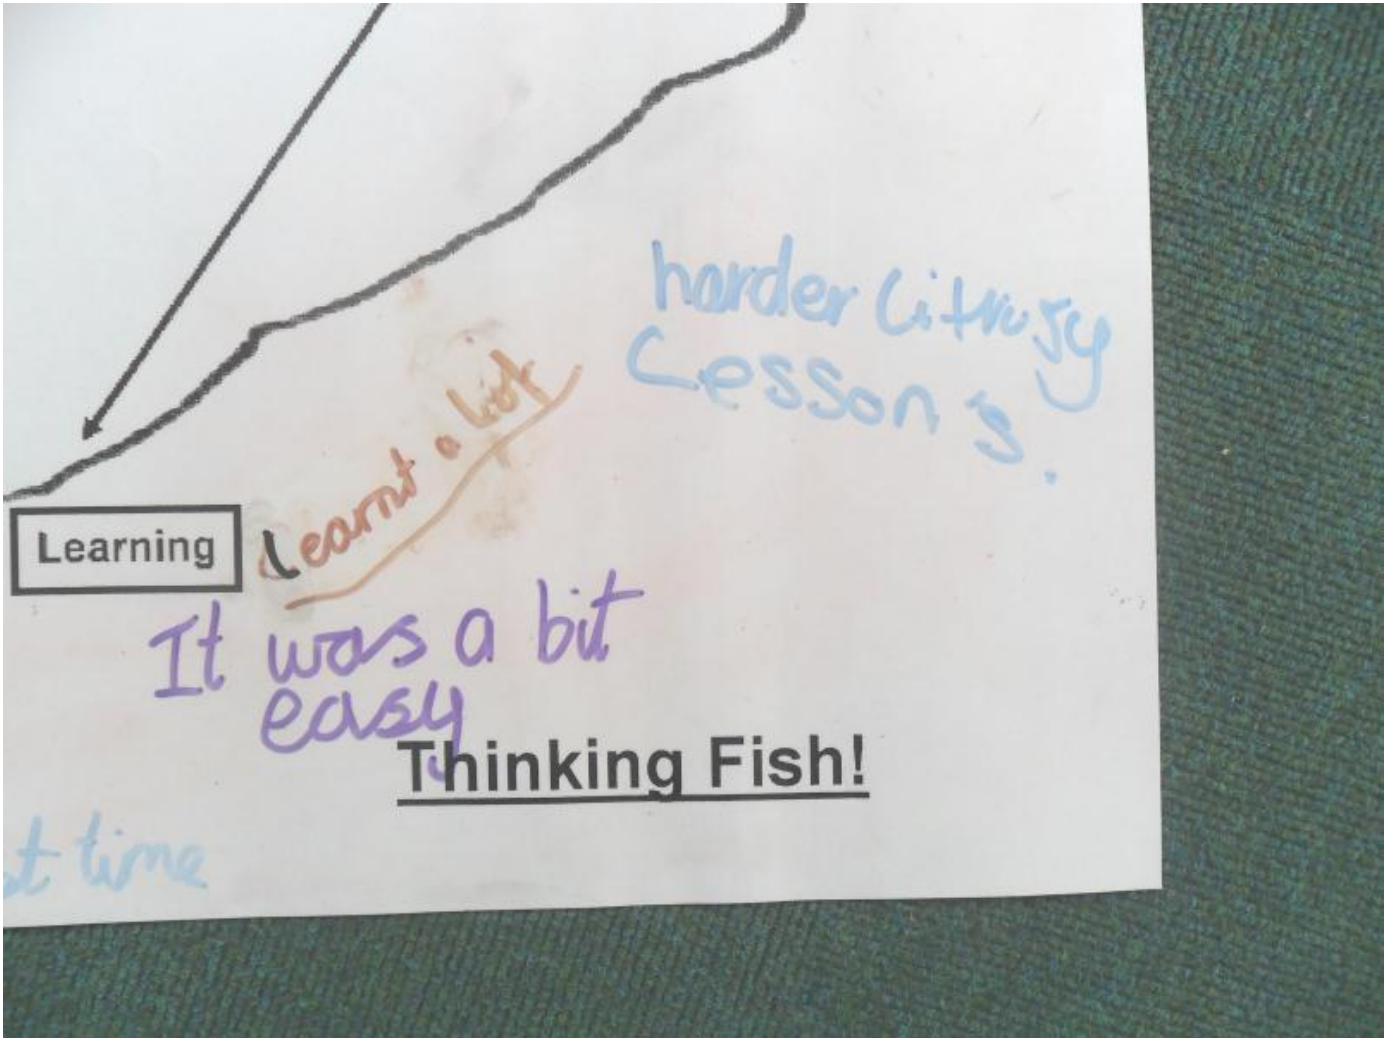 harder Litrusy
Lessons.
Learnt a lot
Learning
It was a bit
easy
Thinking Fish!
time